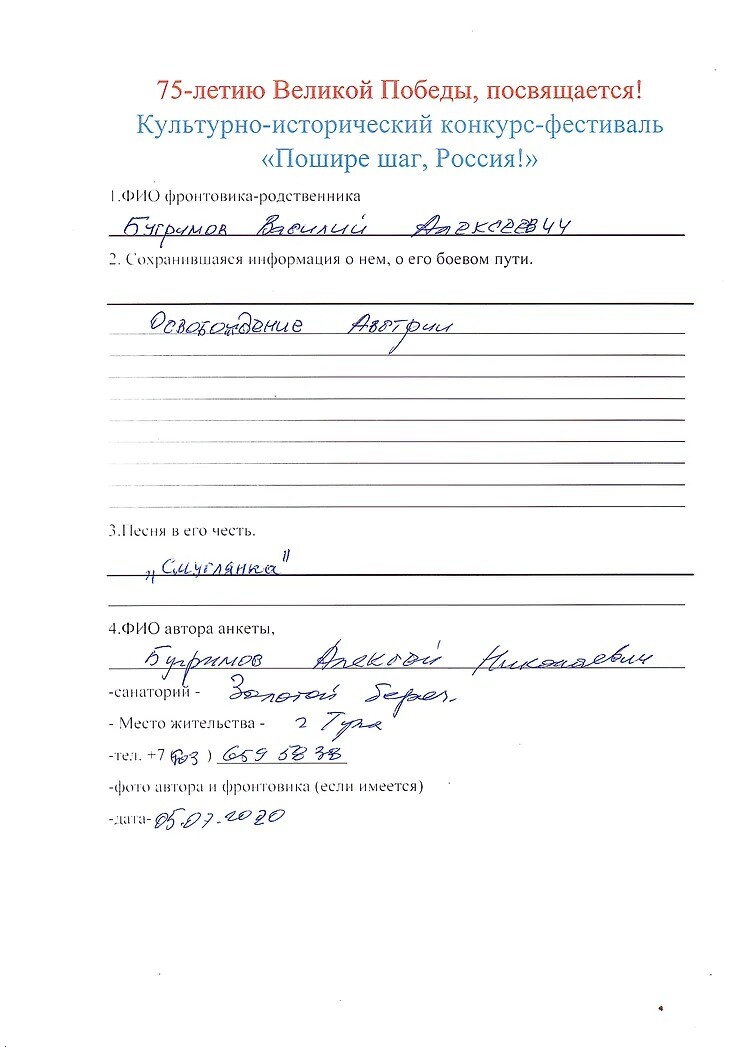 75-летию Великой Победы, посвящается!
Культурно-исторический конкурс-фестиваль
«Пошире шаг, Россия!»
1.ФИО фронтовика-родственника
Бугримов Василий Алексеевич
2. Сохранившаяся информация о нем, о его боевом пути.
Освобождение Австрии
3.Песня в его честь.
„Смуглянка"
4.ФИО автора анкеты,
Бугримов Алексей Николаевич
-санаторий - Золотой берег.
- Место жительства - г Тула
-тел. +7 ( ) 659 58 38
-фото автора и фронтовика (если имеется)
-дата- 05.07.2020